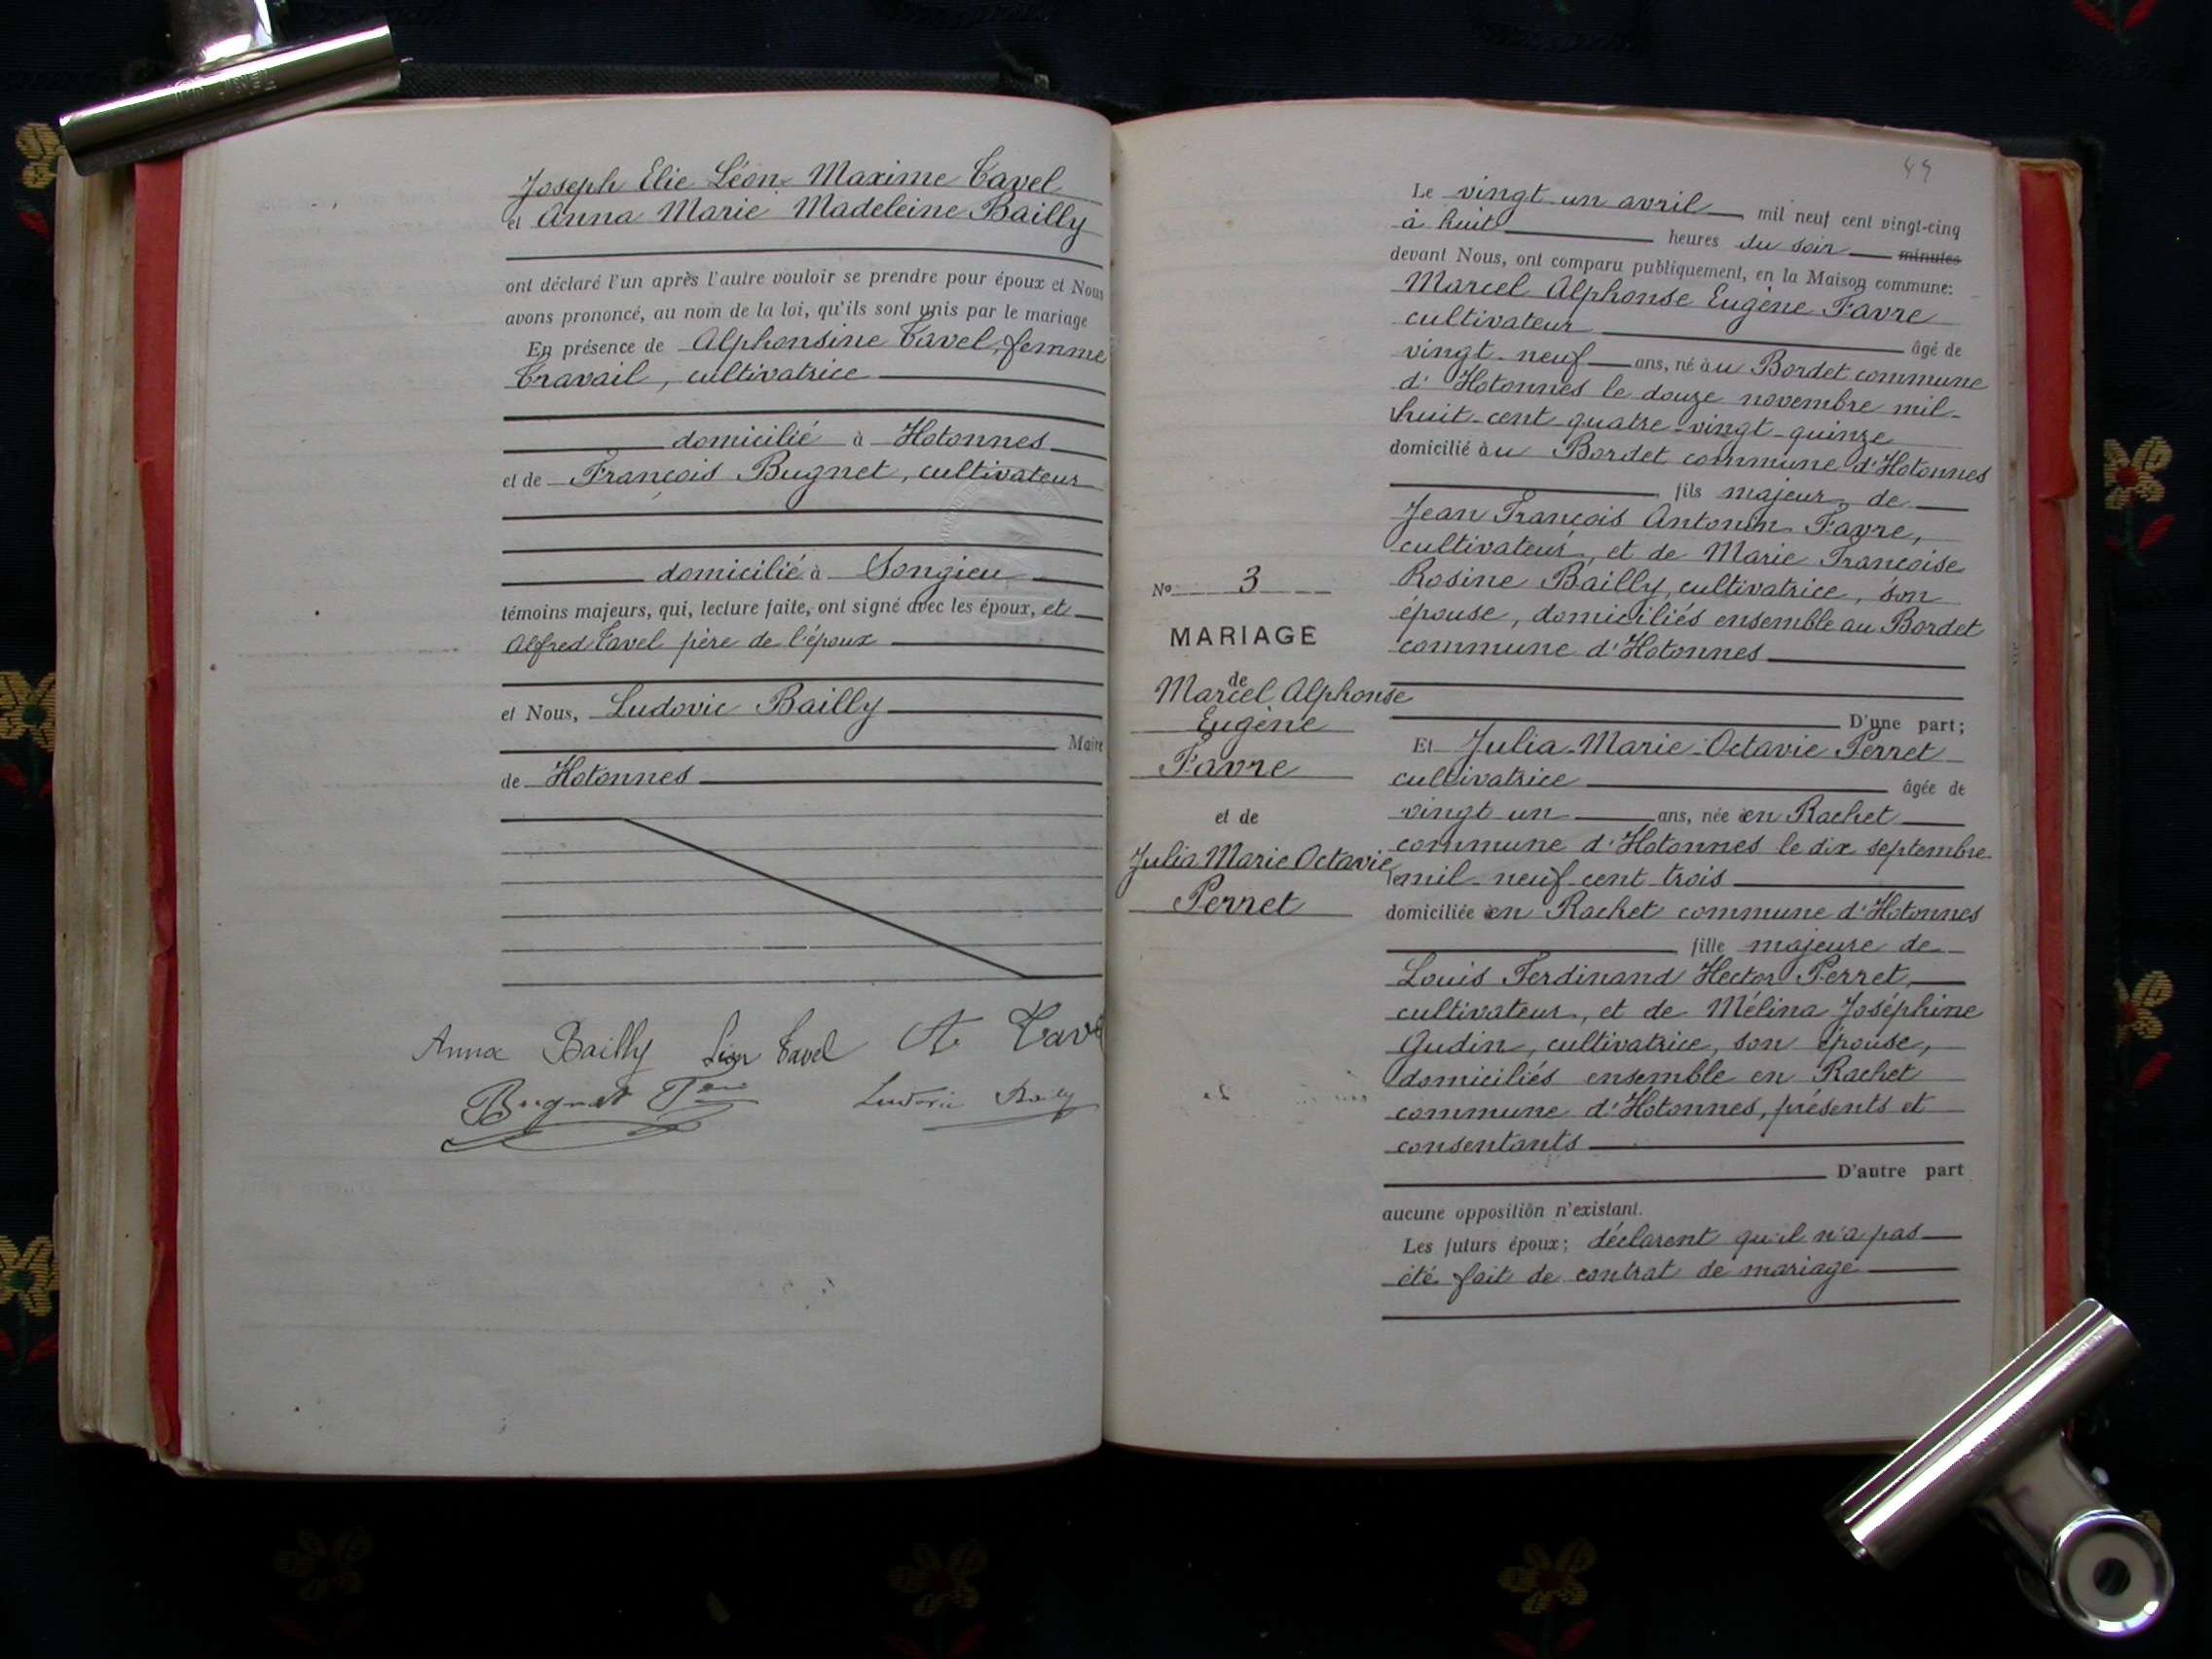 Joseph Elie Léon Maxime Tavel
et Anna Marie Madeleine Bailly
ont déclaré l'un après l'autre vouloir se prendre pour époux et Nous
avons prononcé, au nom de la loi, qu'ils sont unis par le mariage
En présence de Alphonsine Tavel, femme
Travail, cultivatrice
domicilié à Hotonnes
et de François Bugnet, cultivateur
domicilié à Songieu
témoins majeurs, qui, lecture faite, ont signé avec les époux, et
Alfred Tavel père de l'époux
et Nous, Ludovic Bailly
Maire
de Hotonnes
Anna Bailly Léon Tavel A. Tavel
Bugnet Fçois Ludovic Bailly
Le vingt un avril mil neuf cent vingt-cinq
à huit heures du soir minutes
devant Nous, ont comparu publiquement, en la Maison commune:
Marcel Alphonse Eugène Favre
cultivateur âgé de
vingt-neuf ans, né au Bordet commune
d'Hotonnes le douze novembre mil-
huit-cent-quatre-vingt-quinze
domicilié au Bordet commune d'Hotonnes
fils majeur de
Jean François Antonin Favre,
cultivateur, et de Marie Françoise
Rosine Bailly, cultivatrice, son
épouse, domiciliés ensemble au Bordet
commune d'Hotonnes
D'une part;
No 3
MARIAGE
de
Marcel Alphonse
Eugène
Favre
et de
Julia Marie Octavie
Perret
Et Julia Marie Octavie Perret
cultivatrice âgée de
vingt un ans, née en Rachet
commune d'Hotonnes le dix septembre
mil neuf cent trois
domiciliée en Rachet commune d'Hotonnes
fille majeure de
Louis Ferdinand Hector Perret,
cultivateur, et de Mélina Joséphine
Gudin, cultivatrice, son épouse,
domiciliés ensemble en Rachet
commune d'Hotonnes, présents et
consentants
D'autre part
aucune opposition n'existant.
Les futurs époux; déclarent qu'il n'a pas
été fait de contrat de mariage